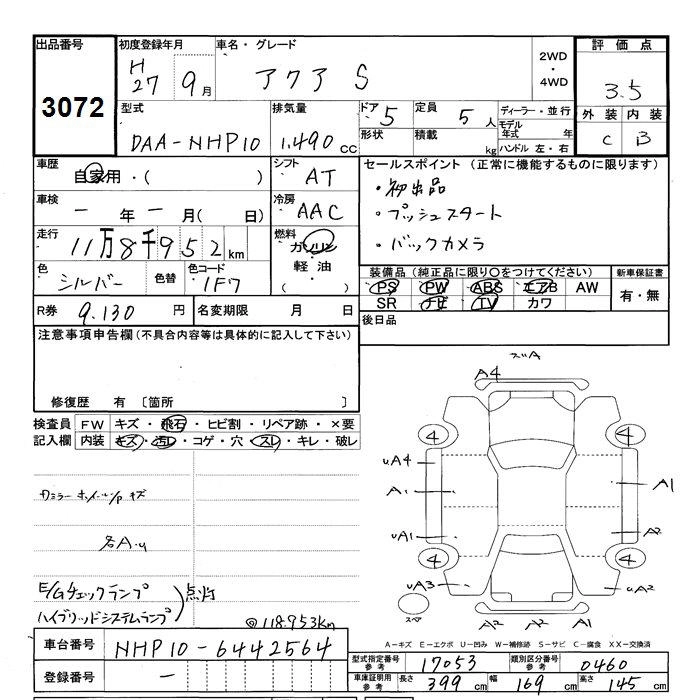 出品番号 初度登録年月 車名・グレード 2WD・4WD 評価点
3072 H27 9月 アクア S 3.5
型式 排気量 ドア 5 定員 5人 ディーラー・並行 外装 内装
DAA-NHP10 1.490cc 形状 積載 kg モデル年式 年 ハンドル 左・右 C B
車歴 自家用・( ) シフト AT セールスポイント (正常に機能するものに限ります)
車検 ー年ー月(日) 冷房 AAC ・初出品
・プッシュスタート
走行 11万8千952km 燃料 ガソリン・軽油・( ) ・バックカメラ
色 シルバー 色替 色コード 1F7 装備品(純正品に限り○をつけてください) 新車保証書
PS PW ABS エアB AW 有・無
SR ナビ TV カワ
R券 9.130円 名変期限 月 日 後日品
注意事項申告欄(不具合内容等は具体的に記入して下さい)
修復歴 有 〔箇所 〕
検査員 FW キズ・飛石・ヒビ割・リペア跡・×要
記入欄 内装 キズ・汚レ・コゲ・穴・スレ・キレ・破レ
A4
4 4
uA4
A1 A1
uA1 A2
4 4
uA3 uA2
スペア A2 A2 A1
各A・u
E/Gチェックランプ
ハイブリッドシステムランプ 点灯
@118.953km
A-キズ E-エクボ U-凹み W-補修跡 S-サビ C-腐食 XX-交換済
車台番号 NHP10-6442564
登録番号 ー
型式指定番号 参考 17053 類別区分番号 参考 0460
車庫証明用 参考 長さ 399cm 幅 169cm 高さ 145cm